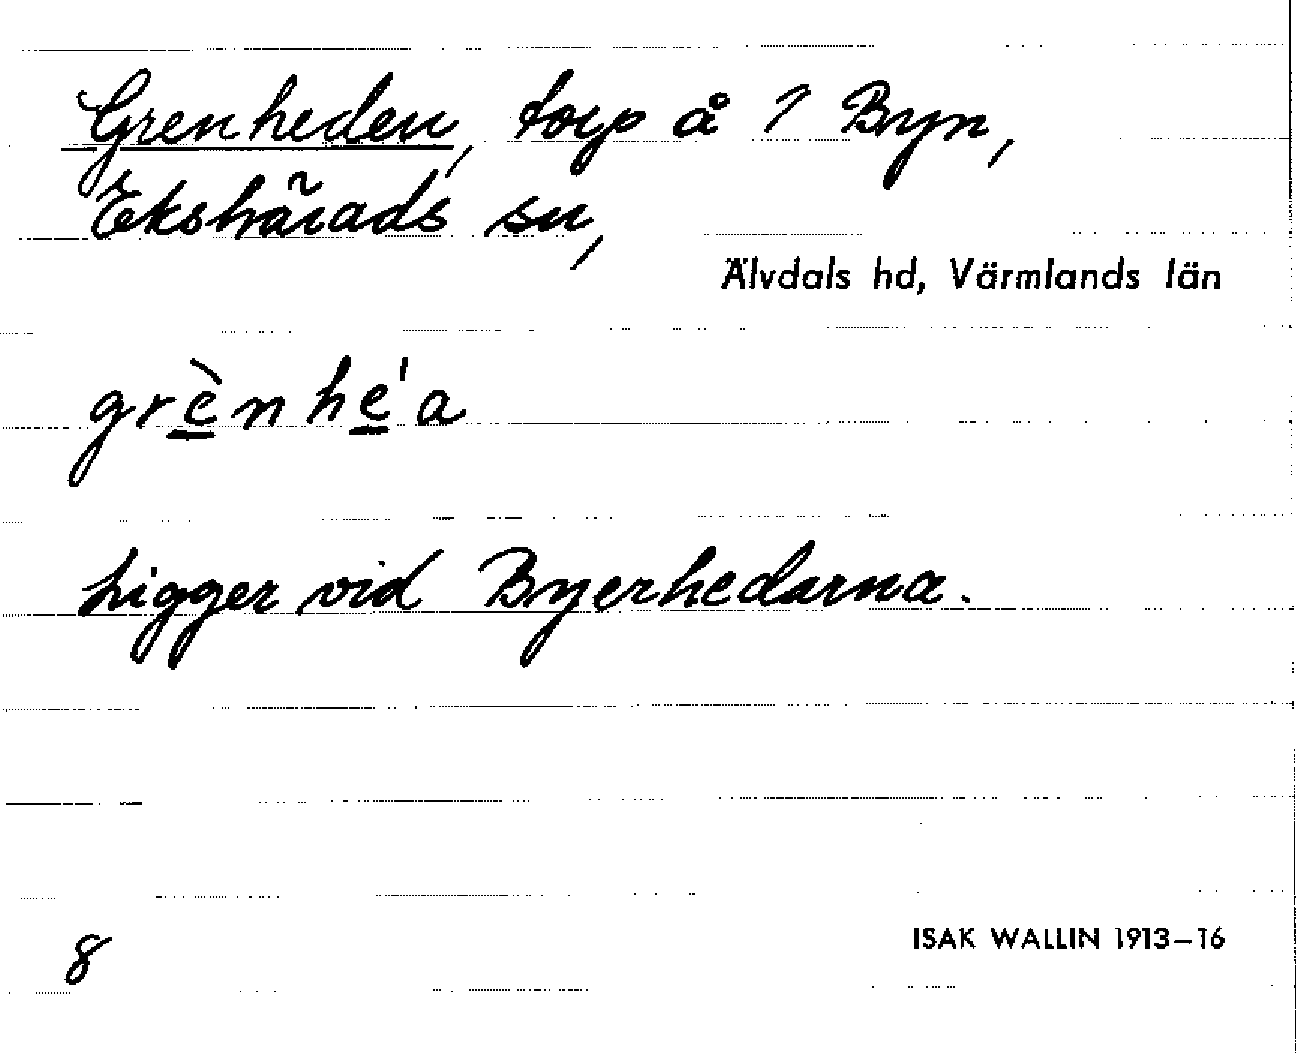 Grenheden, torp å ? Byn,
Ekshärads sn,
Älvdals hd, Värmlands län
grènhe'a
Ligger vid Byerhedarna.
8
ISAK WALLIN 1913–16